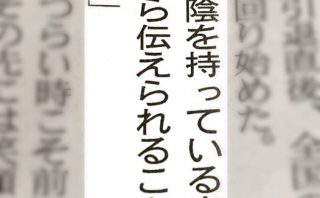 引退後、全国の
回り始めた。
陰を持っている
ら伝えられるこ
」
つらい時こそ前
その先には笑顔